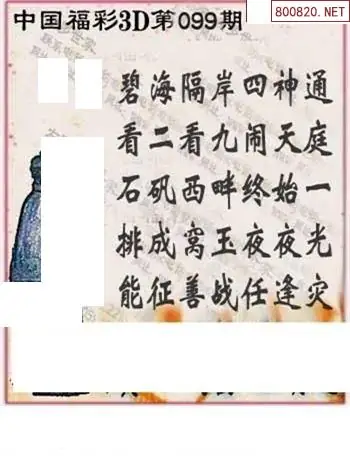 中国福彩3D第099期
800820.NET
碧海隔岸四神通
看二看九闹天庭
石矶西畔终始一
排成窝玉夜夜光
能征善战任逢灾